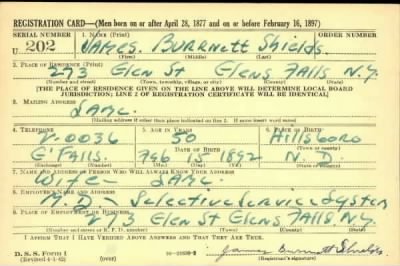 REGISTRATION CARD—(Men born on or after April 28, 1877 and on or before February 16, 1897)
SERIAL NUMBER 1. NAME (Print) ORDER NUMBER
U 202 JAMES. BURRNETT Shields.
(First) (Middle) (Last)
2. PLACE OF RESIDENCE (Print)
273 Glen St Glens Falls N.Y.
(Number and street) (Town, township, village, or city) (County) (State)
[THE PLACE OF RESIDENCE GIVEN ON THE LINE ABOVE WILL DETERMINE LOCAL BOARD
JURISDICTION; LINE 2 OF REGISTRATION CERTIFICATE WILL BE IDENTICAL]
3. MAILING ADDRESS
SAME
[Mailing address if other than place indicated on line 2. If same insert word same]
4. TELEPHONE 5. AGE IN YEARS 6. PLACE OF BIRTH
2-0036 50 Hillsboro
DATE OF BIRTH (Town or county)
G'Falls. 15 1892 N.D.
(Exchange) (Number) (Mo.) (Day) (Yr.) (State or country)
7. NAME AND ADDRESS OF PERSON WHO WILL ALWAYS KNOW YOUR ADDRESS
Wife - SAME
8. EMPLOYER'S NAME AND ADDRESS
M.D. - Selective Service System
9. PLACE OF EMPLOYMENT OR BUSINESS
273 Glen St Glens Falls. N.Y.
(Number and street or R. F. D. number) (Town) (County) (State)
I AFFIRM THAT I HAVE VERIFIED ABOVE ANSWERS AND THAT THEY ARE TRUE.
D. S. S. Form 1
(Revised 4-1-42) (over) James Burrnett Shields
(Registrant's signature)